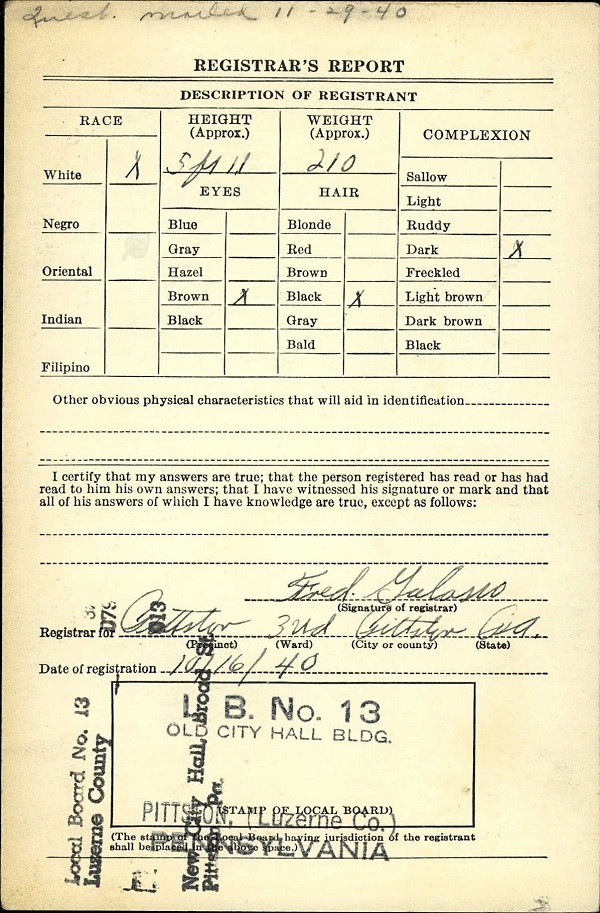 Quest. mailed 11-29-40
REGISTRAR'S REPORT
DESCRIPTION OF REGISTRANT
RACE
HEIGHT
(Approx.)
WEIGHT
(Approx.)
COMPLEXION
White X
5 ft 11
210
Sallow
EYES
HAIR
Light
Negro
Blue
Blonde
Ruddy
Gray
Red
Dark X
Oriental
Hazel
Brown
Freckled
Brown X
Black X
Light brown
Indian
Black
Gray
Dark brown
Bald
Black
Filipino
Other obvious physical characteristics that will aid in identification
I certify that my answers are true; that the person registered has read or has had
read to him his own answers; that I have witnessed his signature or mark and that
all of his answers of which I have knowledge are true, except as follows:
Fred. Galasso
(Signature of registrar)
Registrar for Pittston 3rd Pittston Pa.
(Precinct) (Ward) (City or county) (State)
Date of registration 10/16/40
L. B. No. 13
OLD CITY HALL BLDG.
(STAMP OF LOCAL BOARD)
PITTSTON, (Luzerne Co.)
PENNSYLVANIA
(The stamp of the Local Board having jurisdiction of the registrant
shall be placed in the above space.)
Local Board No. 13
Luzerne County
079
013
New City Hall, Broad St.
Pittston, Pa.